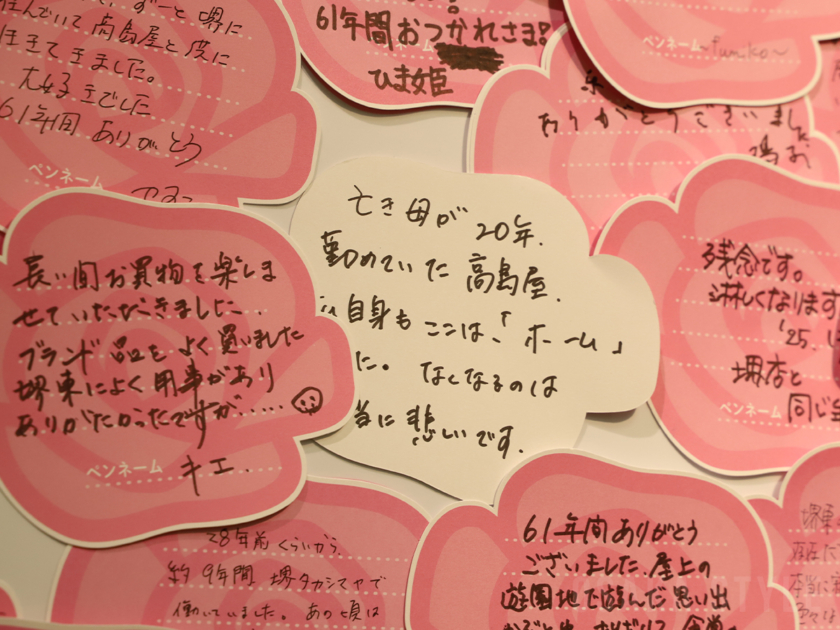 住んでいて高島屋と共に
生きてきました。
大好きでした
61年間 ありがとう
ペンネーム
61年間おつかれさま!
ひま姫
ペンネーム ~fumiko~
ありがとうございました
長い間お買物を楽しま
せていただきました.
ブランド品をよく買いました
堺東によく用事があり
ありがたかったですが……
ペンネーム キエ.
母が 20年.
勤めていた高島屋.
自身も ここは、「ホーム」
た。 なくなるのは
当に 悲しいです.
残念です。
淋しくなります
'25.
堺店と
ペンネーム 同じ
28年前くらいから、
約9年間 堺タカシマヤで
働いていました。あの頃は
61年間ありがとう
ございました.屋上の
遊園地で遊んだ思い出
堺東
本当に